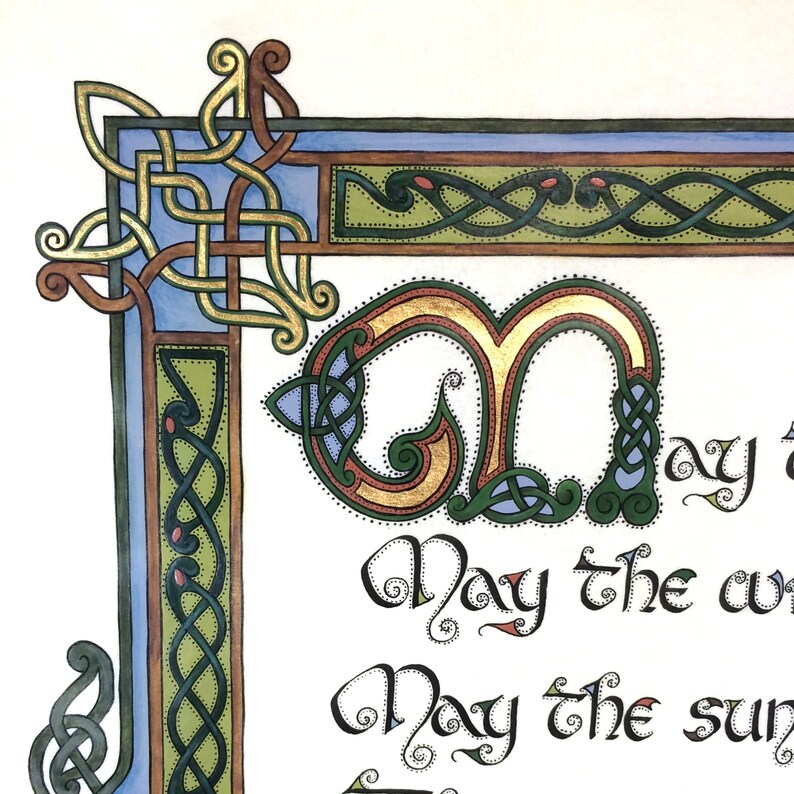 May t
May the wi
May the sun